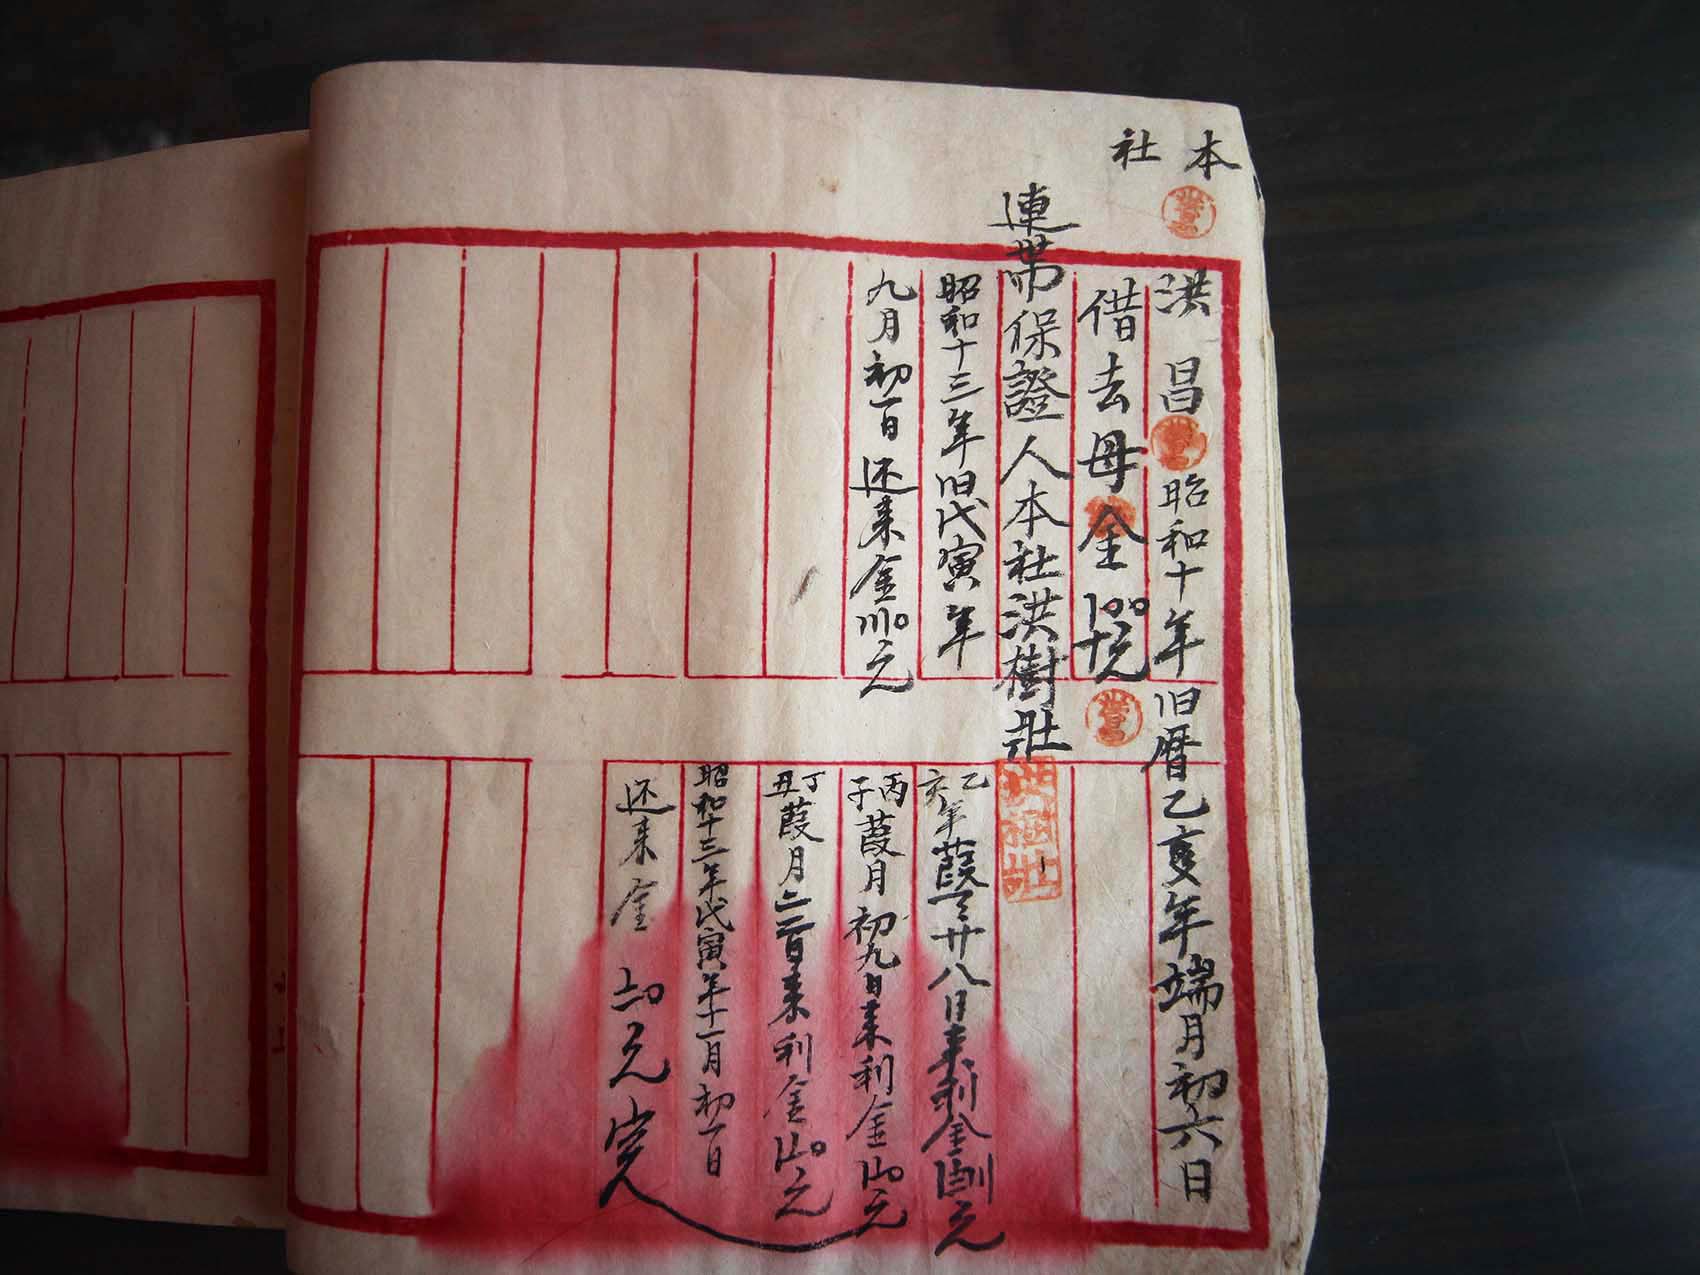 本社
洪昌 昭和十年旧暦乙亥年端月初六日
借去母金
連帯保證人本社洪樹
昭和十三年旧戊寅年
九月初一日还来金〣〇元
乙亥年葭月廿八日来利金
丙子葭月初九日来利金
丁丑葭月二日来利金
昭和十三年戊寅年十一月初一日
还来金
元完